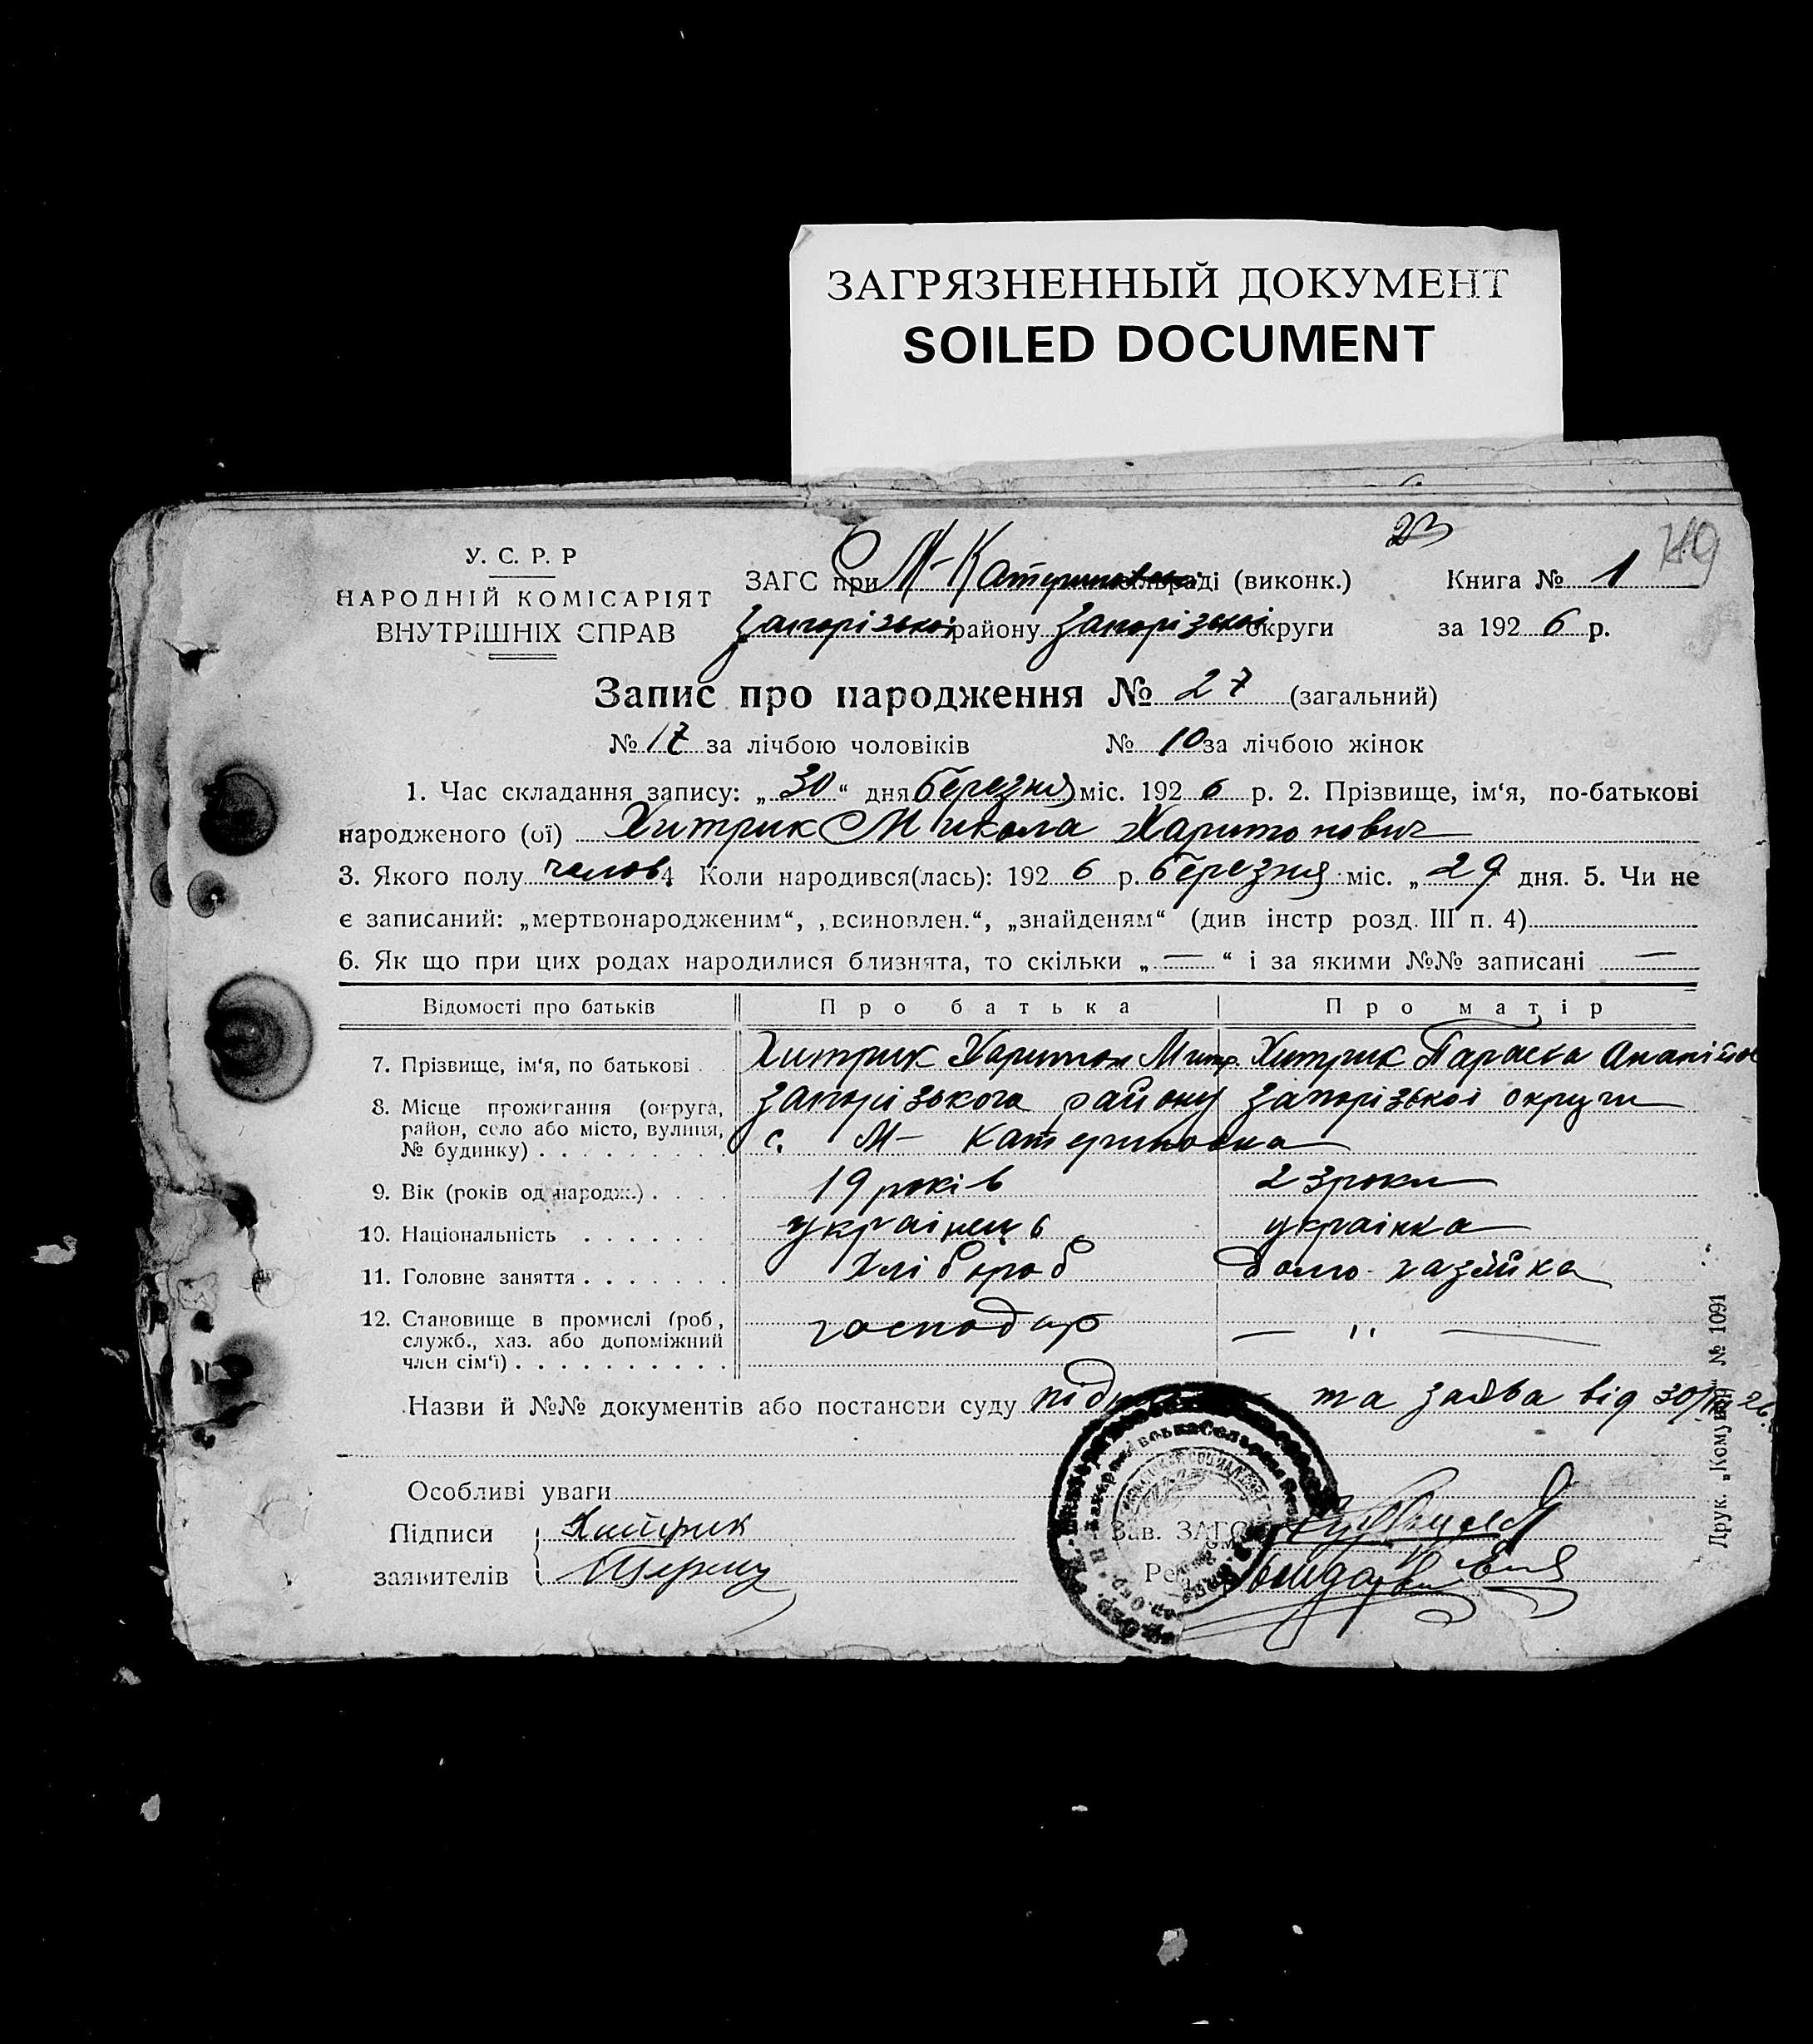 ЗАГРЯЗНЕННЫЙ ДОКУМЕНТ
SOILED DOCUMENT
23
У. С. Р. Р
НАРОДНІЙ КОМІСАРІЯТ
ВНУТРІШНІХ СПРАВ
ЗАГС при М-Катериновськ сільраді (виконк.)
Книга № 1
Запорізькоі району Запорізькоі округи
за 192 6 р.
Запис про народження № 27 (загальний)
№ 17 за лічбою чоловіків № 10 за лічбою жінок
1. Час складання запису: „ 30 “ дня березня міс. 192 6 р. 2. Прізвище, ім‘я, по-батькові
народженого (ої) Хитрик Микола Харитонович
3. Якого полу чолов. 4 Коли народився(лась): 192 6 р. березня міс. „ 29 дня. 5. Чи не
є записаний: „мертвонародженим“, „всиновлен.“, „знайденям“ (див інстр розд. III п. 4)
6. Як що при цих родах народилися близнята, то скільки „ — “ і за якими №№ записані —
Відомості про батьків Про батька Про матір
7. Прізвище, ім‘я, по батькові Хитрик Харитон Митр. Хитрик Параска
8. Місце прожигання (округа, район, село або місто, вулиця, № будинку) Запорізького району Запорізькоі округи
с. М- Катериновка
9. Вік (років од народж.) 19 років 23 роки
10. Національність украінець украінка
11. Головне заняття Хлібороб домо-хазяйка
12. Становище в промислі (роб, служб., хаз. або допоміжний член сім‘ї) господар — „ —
Назви й №№ документів або постанови суду та заява від 30/III 26.
Особливі уваги
Підписи Хитрик
заявителів
Зав. ЗАГС
Друк. „Комунар“ № 1091